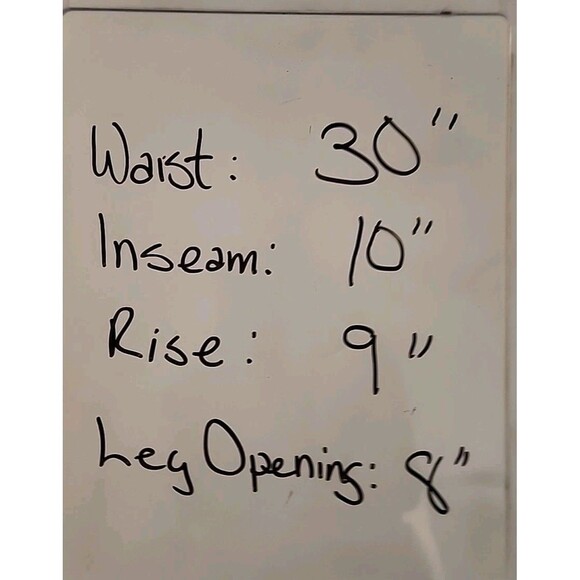 Waist: 30"
Inseam: 10"
Rise: 9"
Leg Opening: 8"